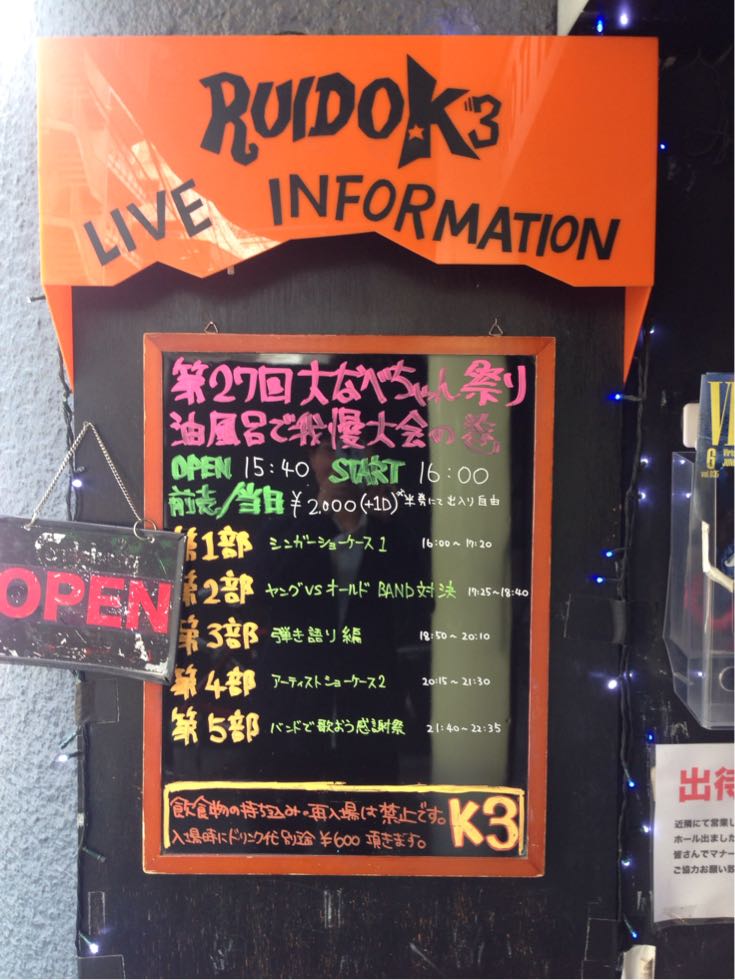 RUIDO K3
LIVE INFORMATION
第27回 大なべちゃん祭り
油風呂で我慢大会の巻
OPEN 15:40 START 16:00
前売/当日 ¥2.000(+1D) *半券にて出入り自由
第1部 シンガーショーケース1 16:00～17:20
第2部 ヤングVSオールド BAND対決 17:25～18:40
第3部 弾き語り編 18:50～20:10
第4部 アーティストショーケース2 20:15～21:30
第5部 バンドで歌おう感謝祭 21:40～22:35
飲食物の持ち込み・再入場は禁止です。
入場時にドリンク代別途¥600頂きます。
K3
OPEN
6
vol.035
出待
近隣にて営業し
ホール出ました
皆さんでマナー
ご協力お願い致